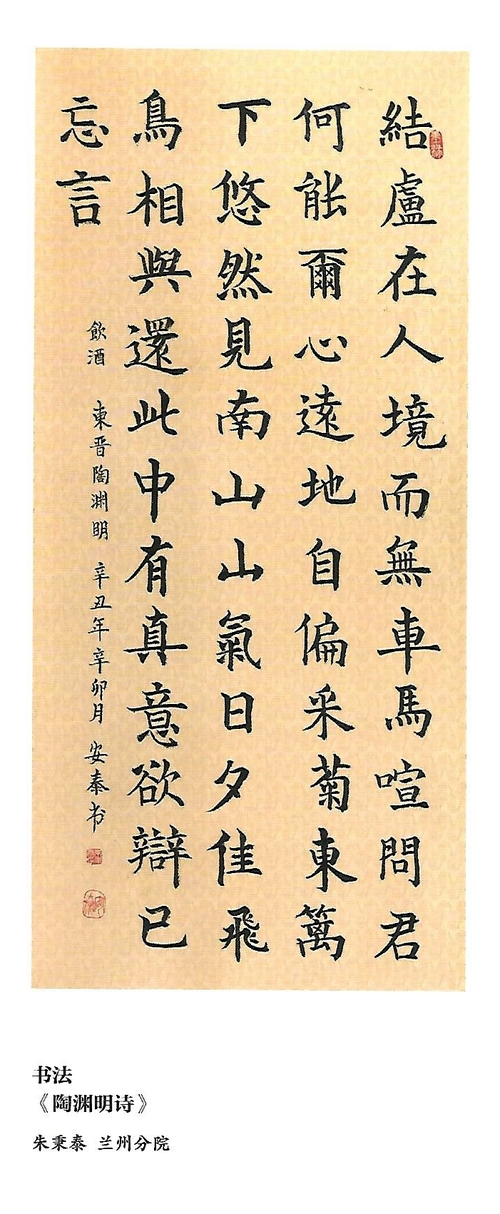 結盧在人境而無車馬喧問君
何能爾心遠地自偏采菊東篱
下悠然見南山山氣日夕佳飛
鳥相與還此中有真意欲辯已
忘言
飲酒 東晋陶渊明 辛丑年辛卯月 安泰书
书法
《陶渊明诗》
朱秉泰 兰州分院